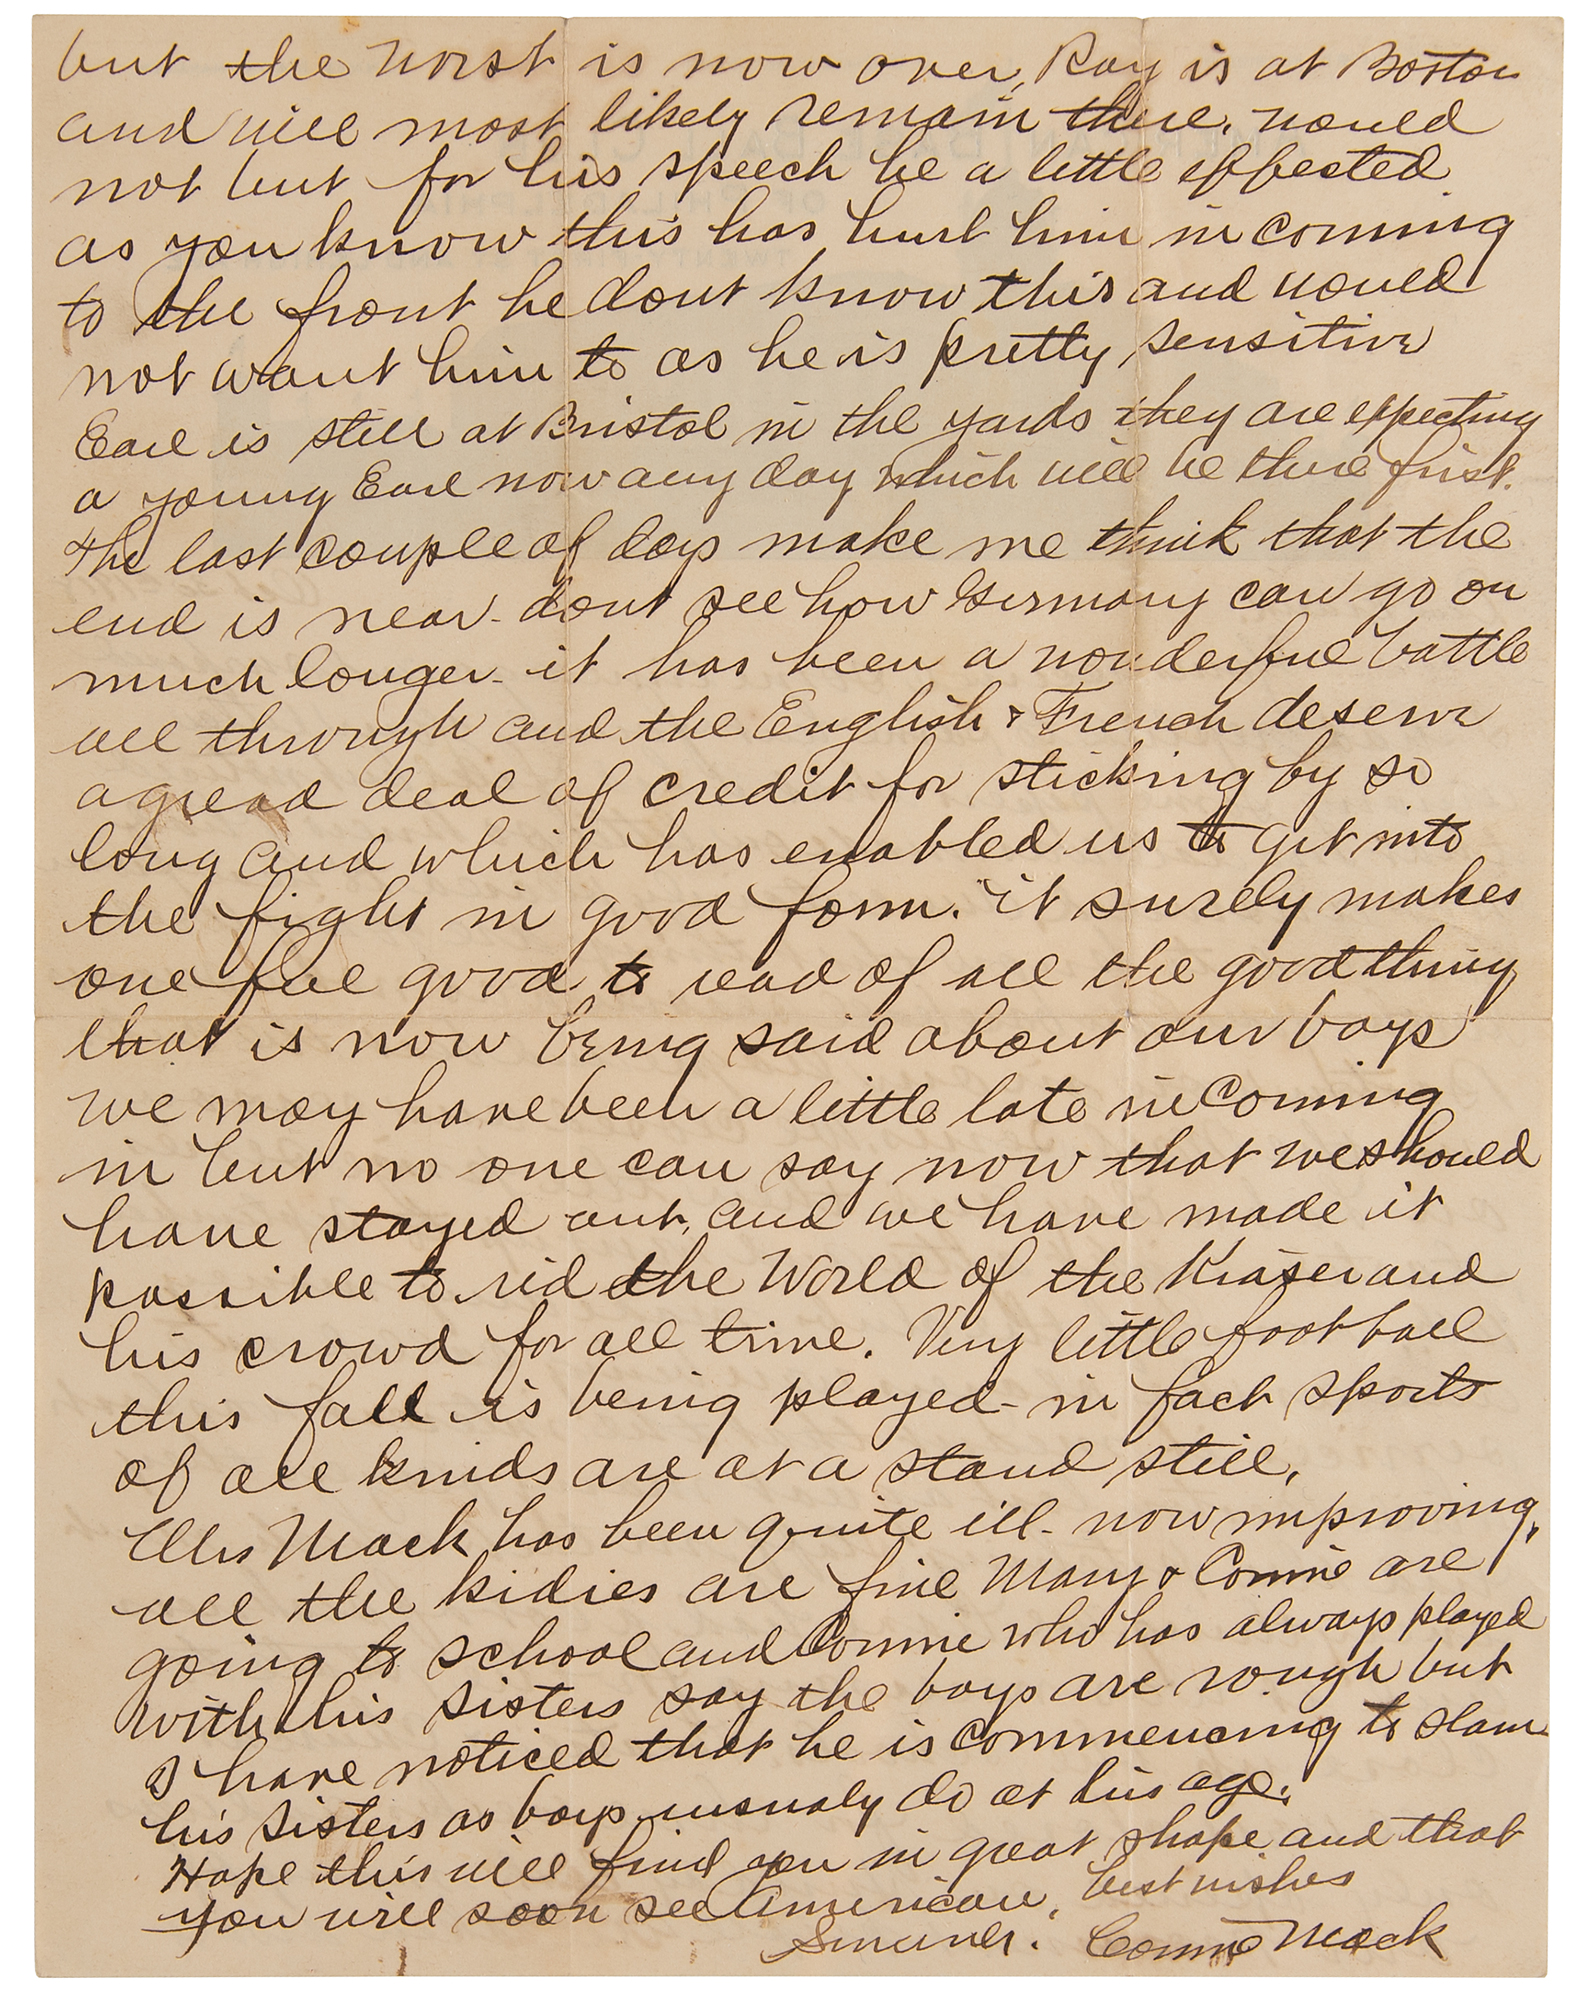 but the worst is now over, Ray is at Boston
and will most likely remain there. would
not but for his speech be a little effected
as you know this has hurt him in coming
to the front he dont know this and would
not want him to as he is pretty sensitive
Earl is still at Bristol in the yards they are expecting
a young Earl now any day which will be there first.
The last couple of days make me think that the
end is near - dont see how Germany can go on
much longer - it has been a wonderful battle
all through and the English & French deserve
a gread deal of credit for sticking by so
long and which has enabled us to get into
the fight in good form. it surely makes
one feel good to read of all the good thing
that is now being said about our boys
we may have been a little late in coming
in but no one can say now that we should
have stayed out, and we have made it
possible to rid the World of the Kiaser and
his crowd for all time. Very little foot ball
this fall is being played - in fact sports
of all kinds are at a stand still.
Mrs Mack has been quite ill - now improving,
all the kidies are fine Mary & Connie are
going to school and Connie who has always played
with his sisters say the boys are rough but
I have noticed that he is commencing to slam
his sisters as boys usualy do at his age.
Hope this will find you in great shape and that
you will soon see American, best wishes
Sincerely. Connie Mack